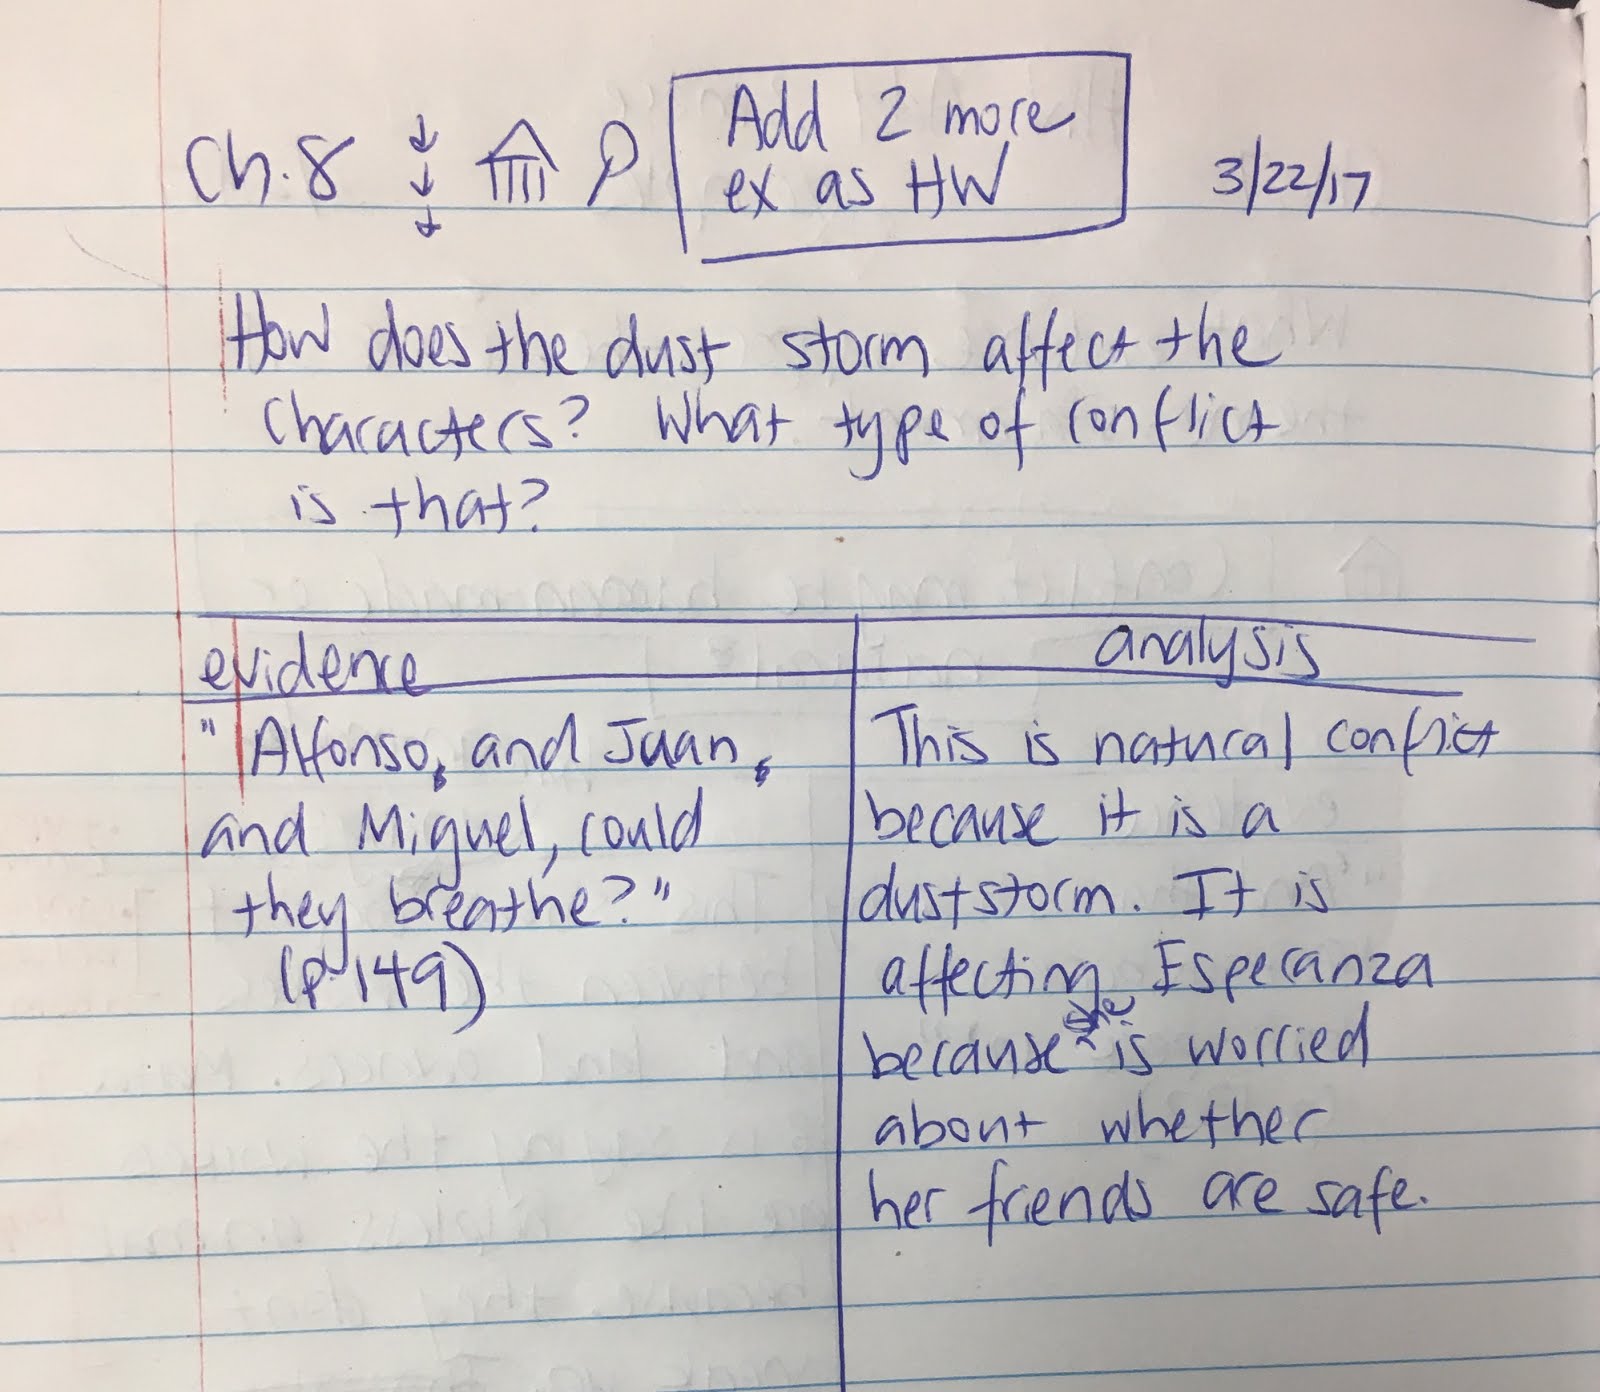 Ch. 8
Add 2 more
ex as HW
3/22/17
How does the dust storm affect the
characters? What type of conflict
is that?
evidence
analysis
"Alfonso, and Juan,
and Miguel, could
they breathe?"
(p. 149)
This is natural conflict
because it is a
duststorm. It is
affecting Esperanza
because she is worried
about whether
her friends are safe.